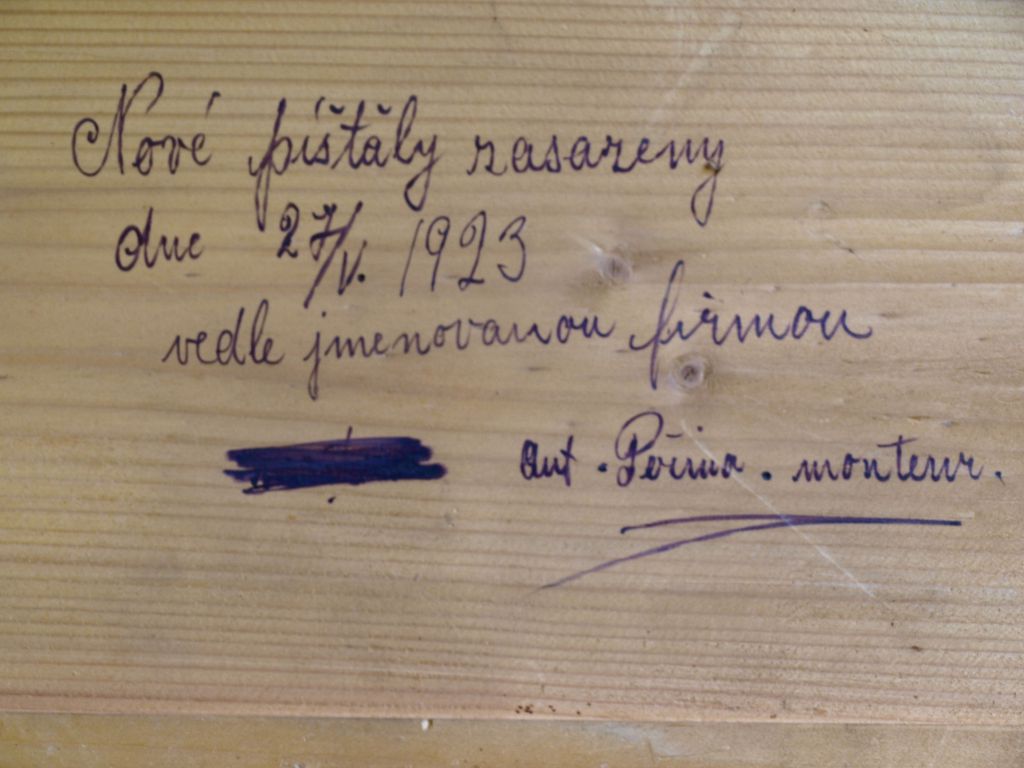 Nové píšťăly zasazeny
dne 27/V. 1923
vedle jmenovanou firmou
Ant. monteur.